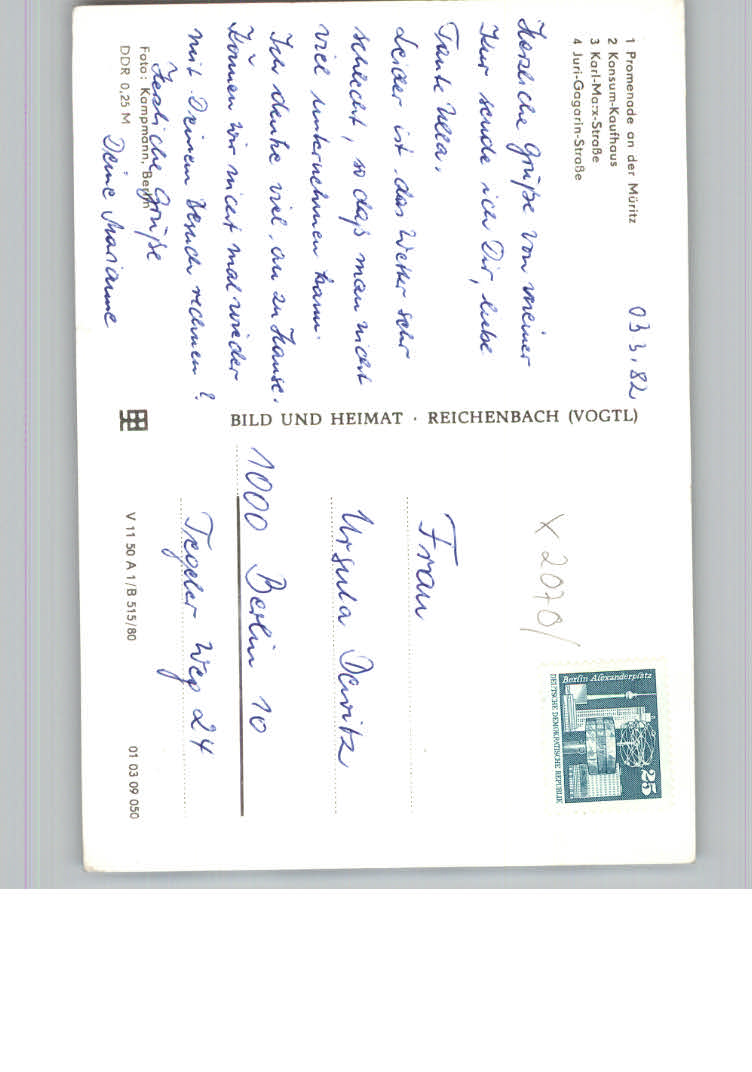 1 Promenade an der Müritz
2 Konsum-Kaufhaus
3 Karl-Marx-Straße
4 Juri-Gagarin-Straße
03.3.82
Herzliche Grüße von meiner
Kur sende ich Dir, liebe
Tante Ulla.
Leider ist das Wetter sehr
schlecht, so daß man nicht
viel unternehmen kann.
Ich denke viel an zu Hause.
Können wir nicht mal wieder
mit Deinem Besuch rechnen?
Herzliche Grüße
Deine Marianne
Foto: Kampmann, Berlin
DDR 0,25 M
BILD UND HEIMAT · REICHENBACH (VOGTL)
X 2070/
Berlin Alexanderplatz
25
DEUTSCHE DEMOKRATISCHE REPUBLIK
Frau
Ursula Dewitz
1000 Berlin 10
Tegeler Weg 24
V 11 50 A 1/B 515/80
01 03 09 050